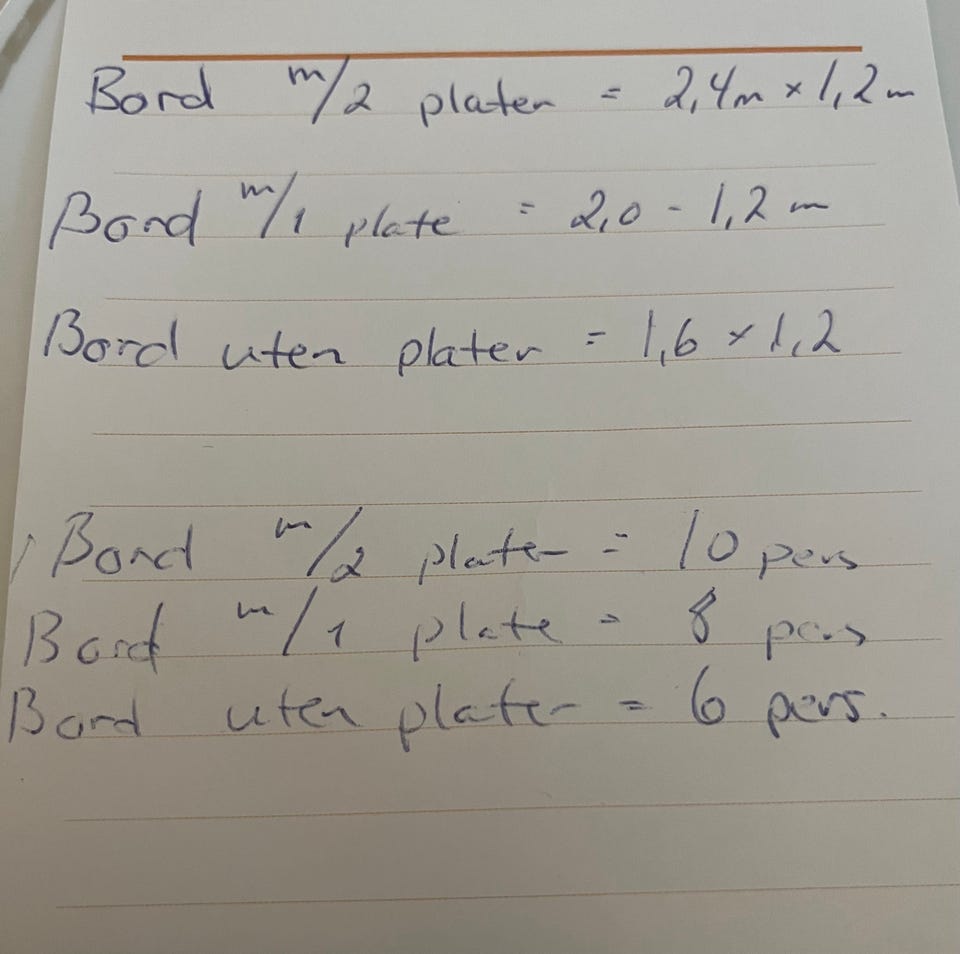 Bord m/2 plater = 2,4m x 1,2m
Bord m/1 plate = 2,0 - 1,2 m
Bord uten plater = 1,6 x 1,2
Bord m/2 plater = 10 pers
Bord m/1 plate = 8 pers
Bord uten plater = 6 pers.